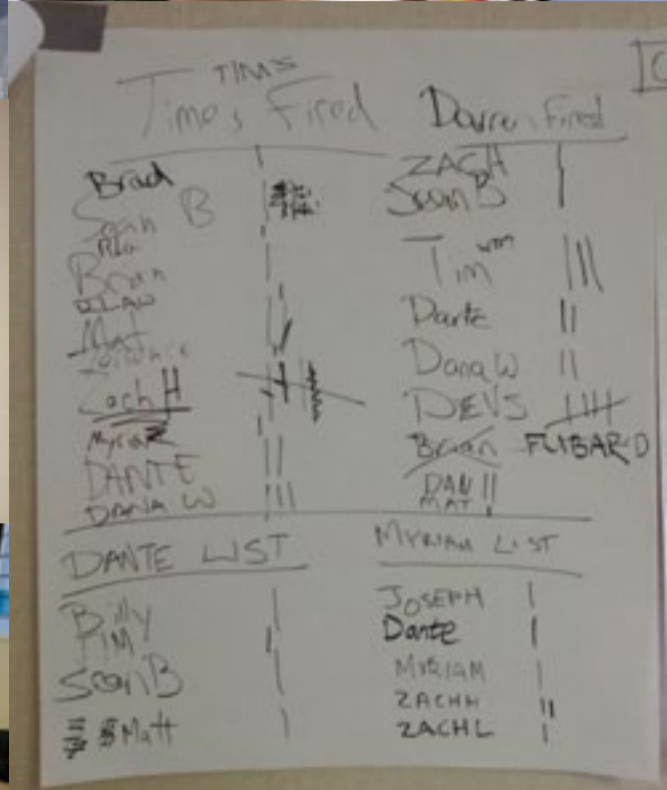 TIMS
Times Fired
Brad |
Sean B
Brian |
Mat ||
Zach H
Myriam |
DANTE ||
DANA W |||
Darren Fired
ZACH |
Sean B |
Tim |||
Dante ||
Dana W ||
DEVS
Brian FUBAR'D
DAN ||
MAT |
DANTE LIST
Billy |
TIM |
Sean B |
Matt |
MYRIAM LIST
JOSEPH |
Dante |
MYRIAM |
ZACH H ||
ZACH L |